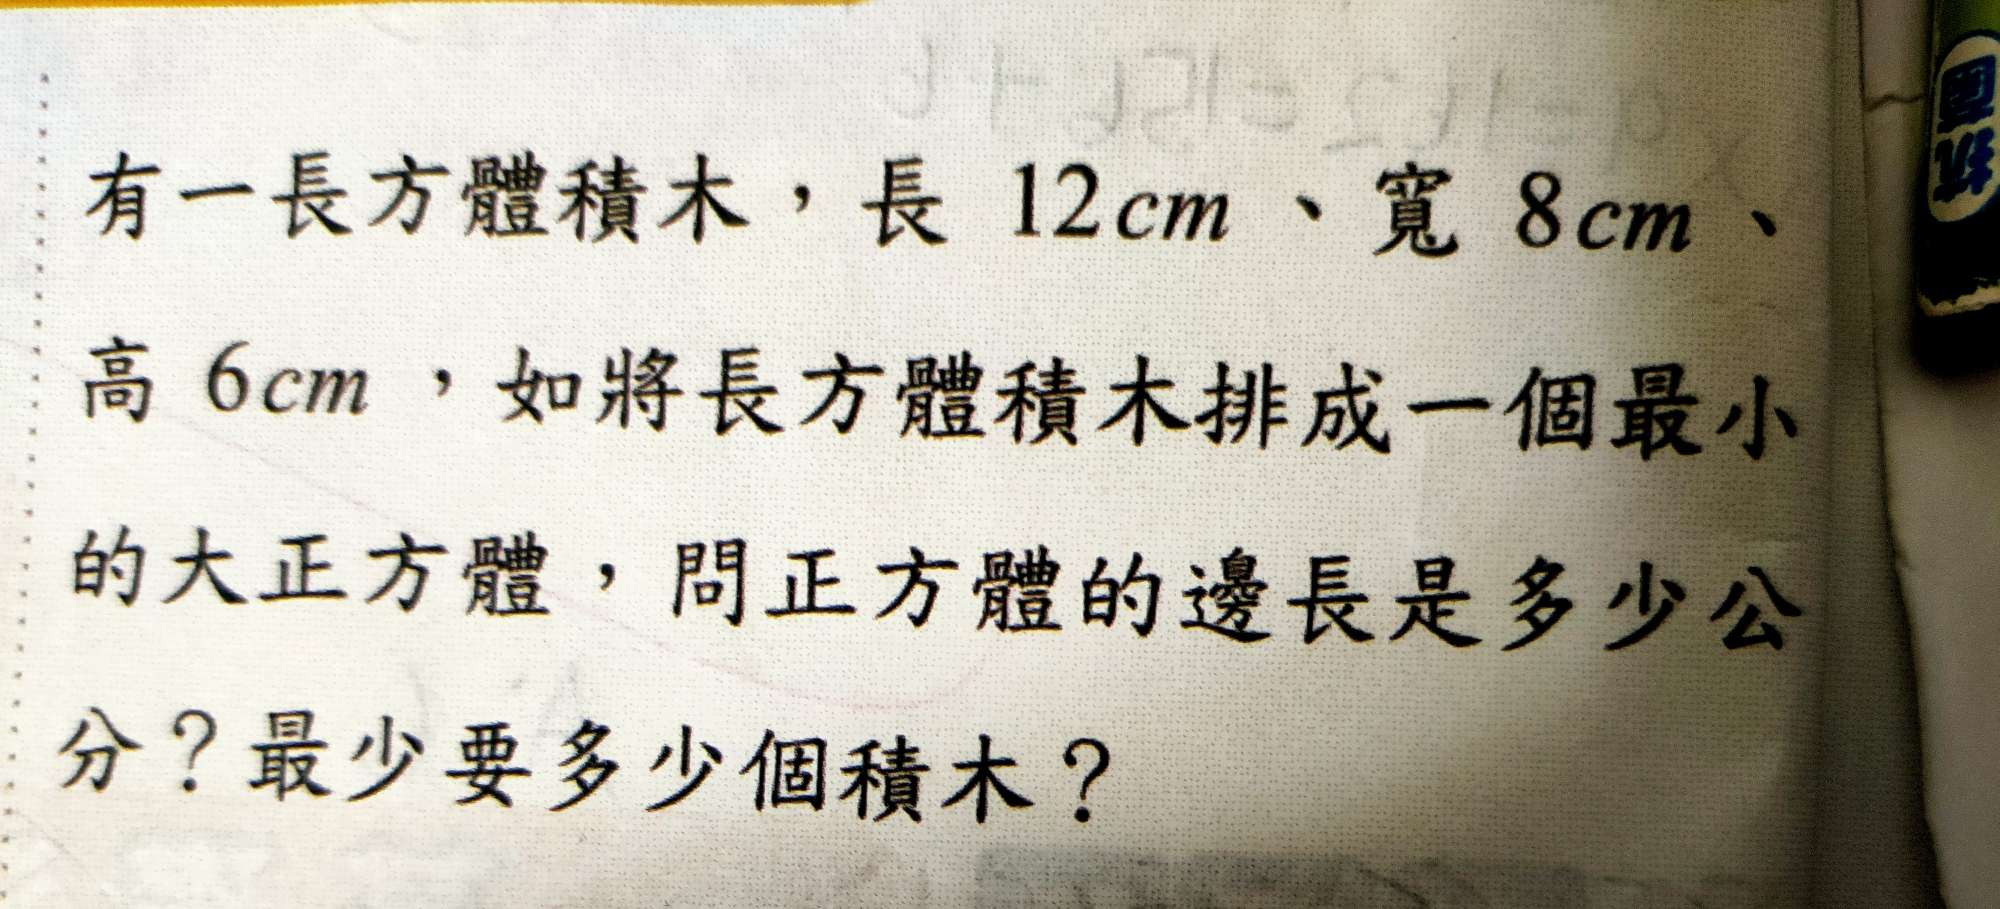 有一長方體積木，長 12cm、寬 8cm、
高 6cm，如將長方體積木排成一個最小
的大正方體，問正方體的邊長是多少公
分？最少要多少個積木？